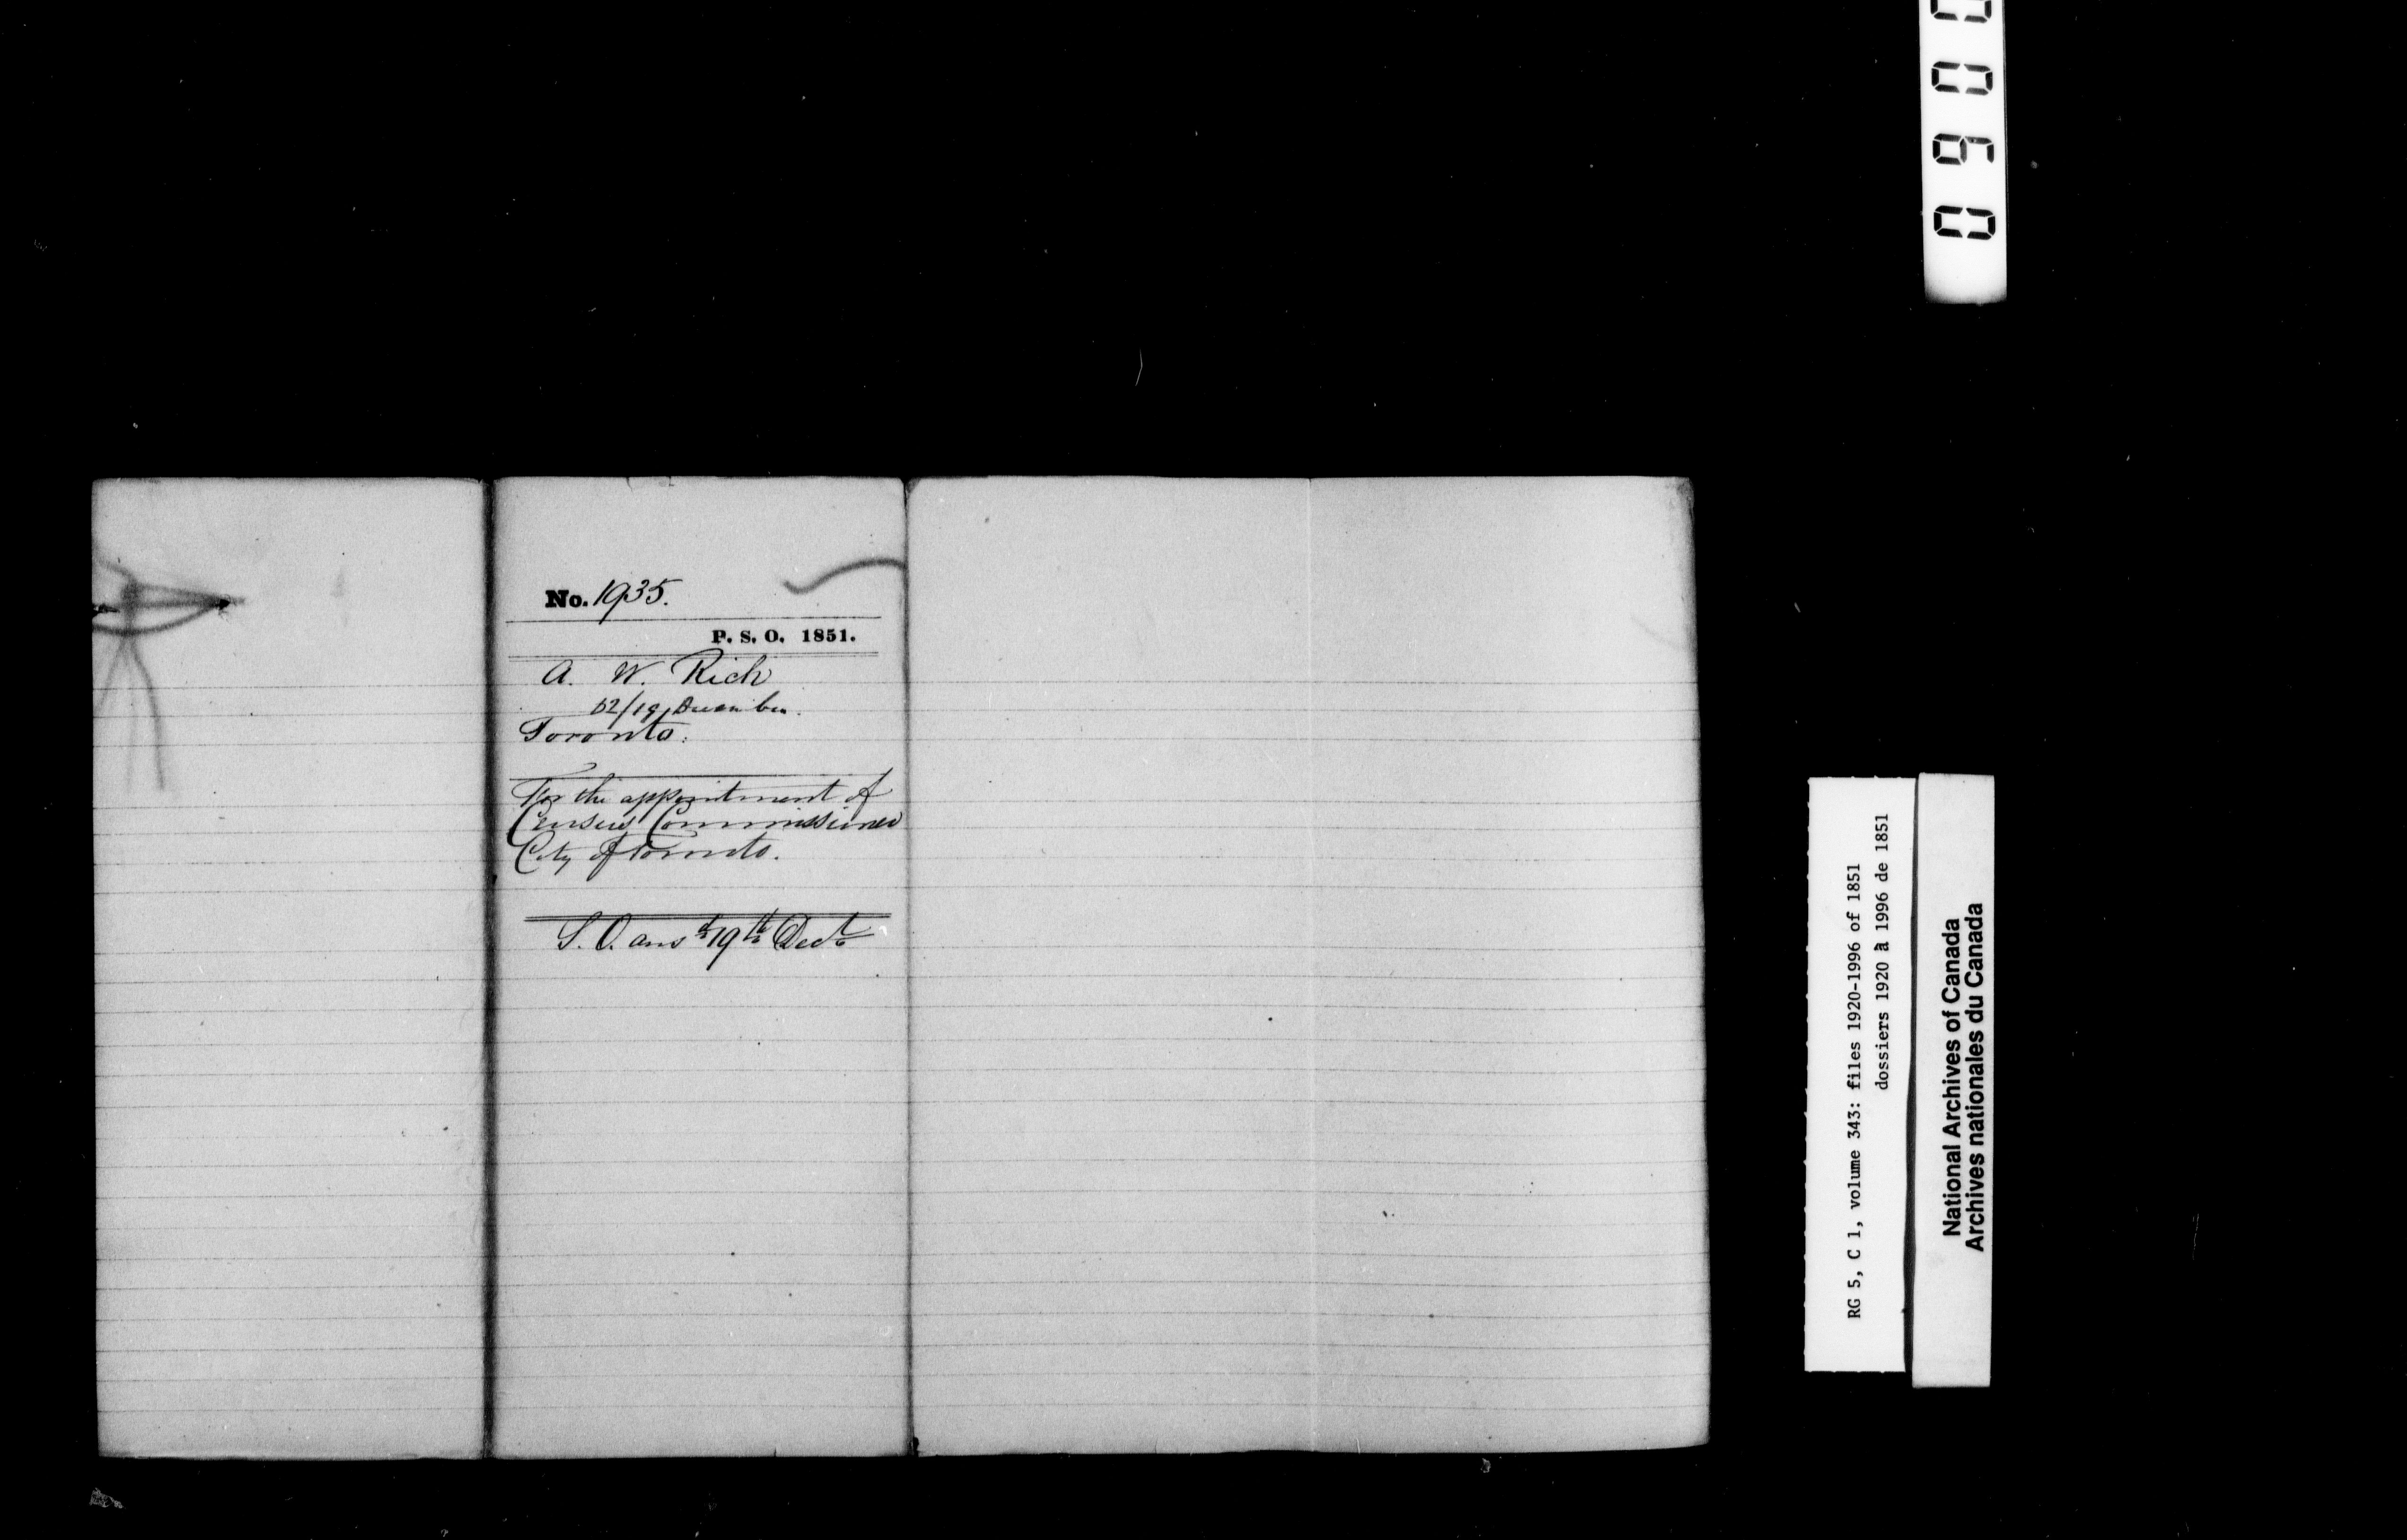 No. 1935.
P. S. O. 1851.
A. W. Rich
12/19, December.
Toronto.
For the appointment of
Census Commissioner
City of Toronto.
S. O. ansd 19th Dec
RG 5, C 1, volume 343: files 1920-1996 of 1851
dossiers 1920 à 1996 de 1851
National Archives of Canada
Archives nationales du Canada